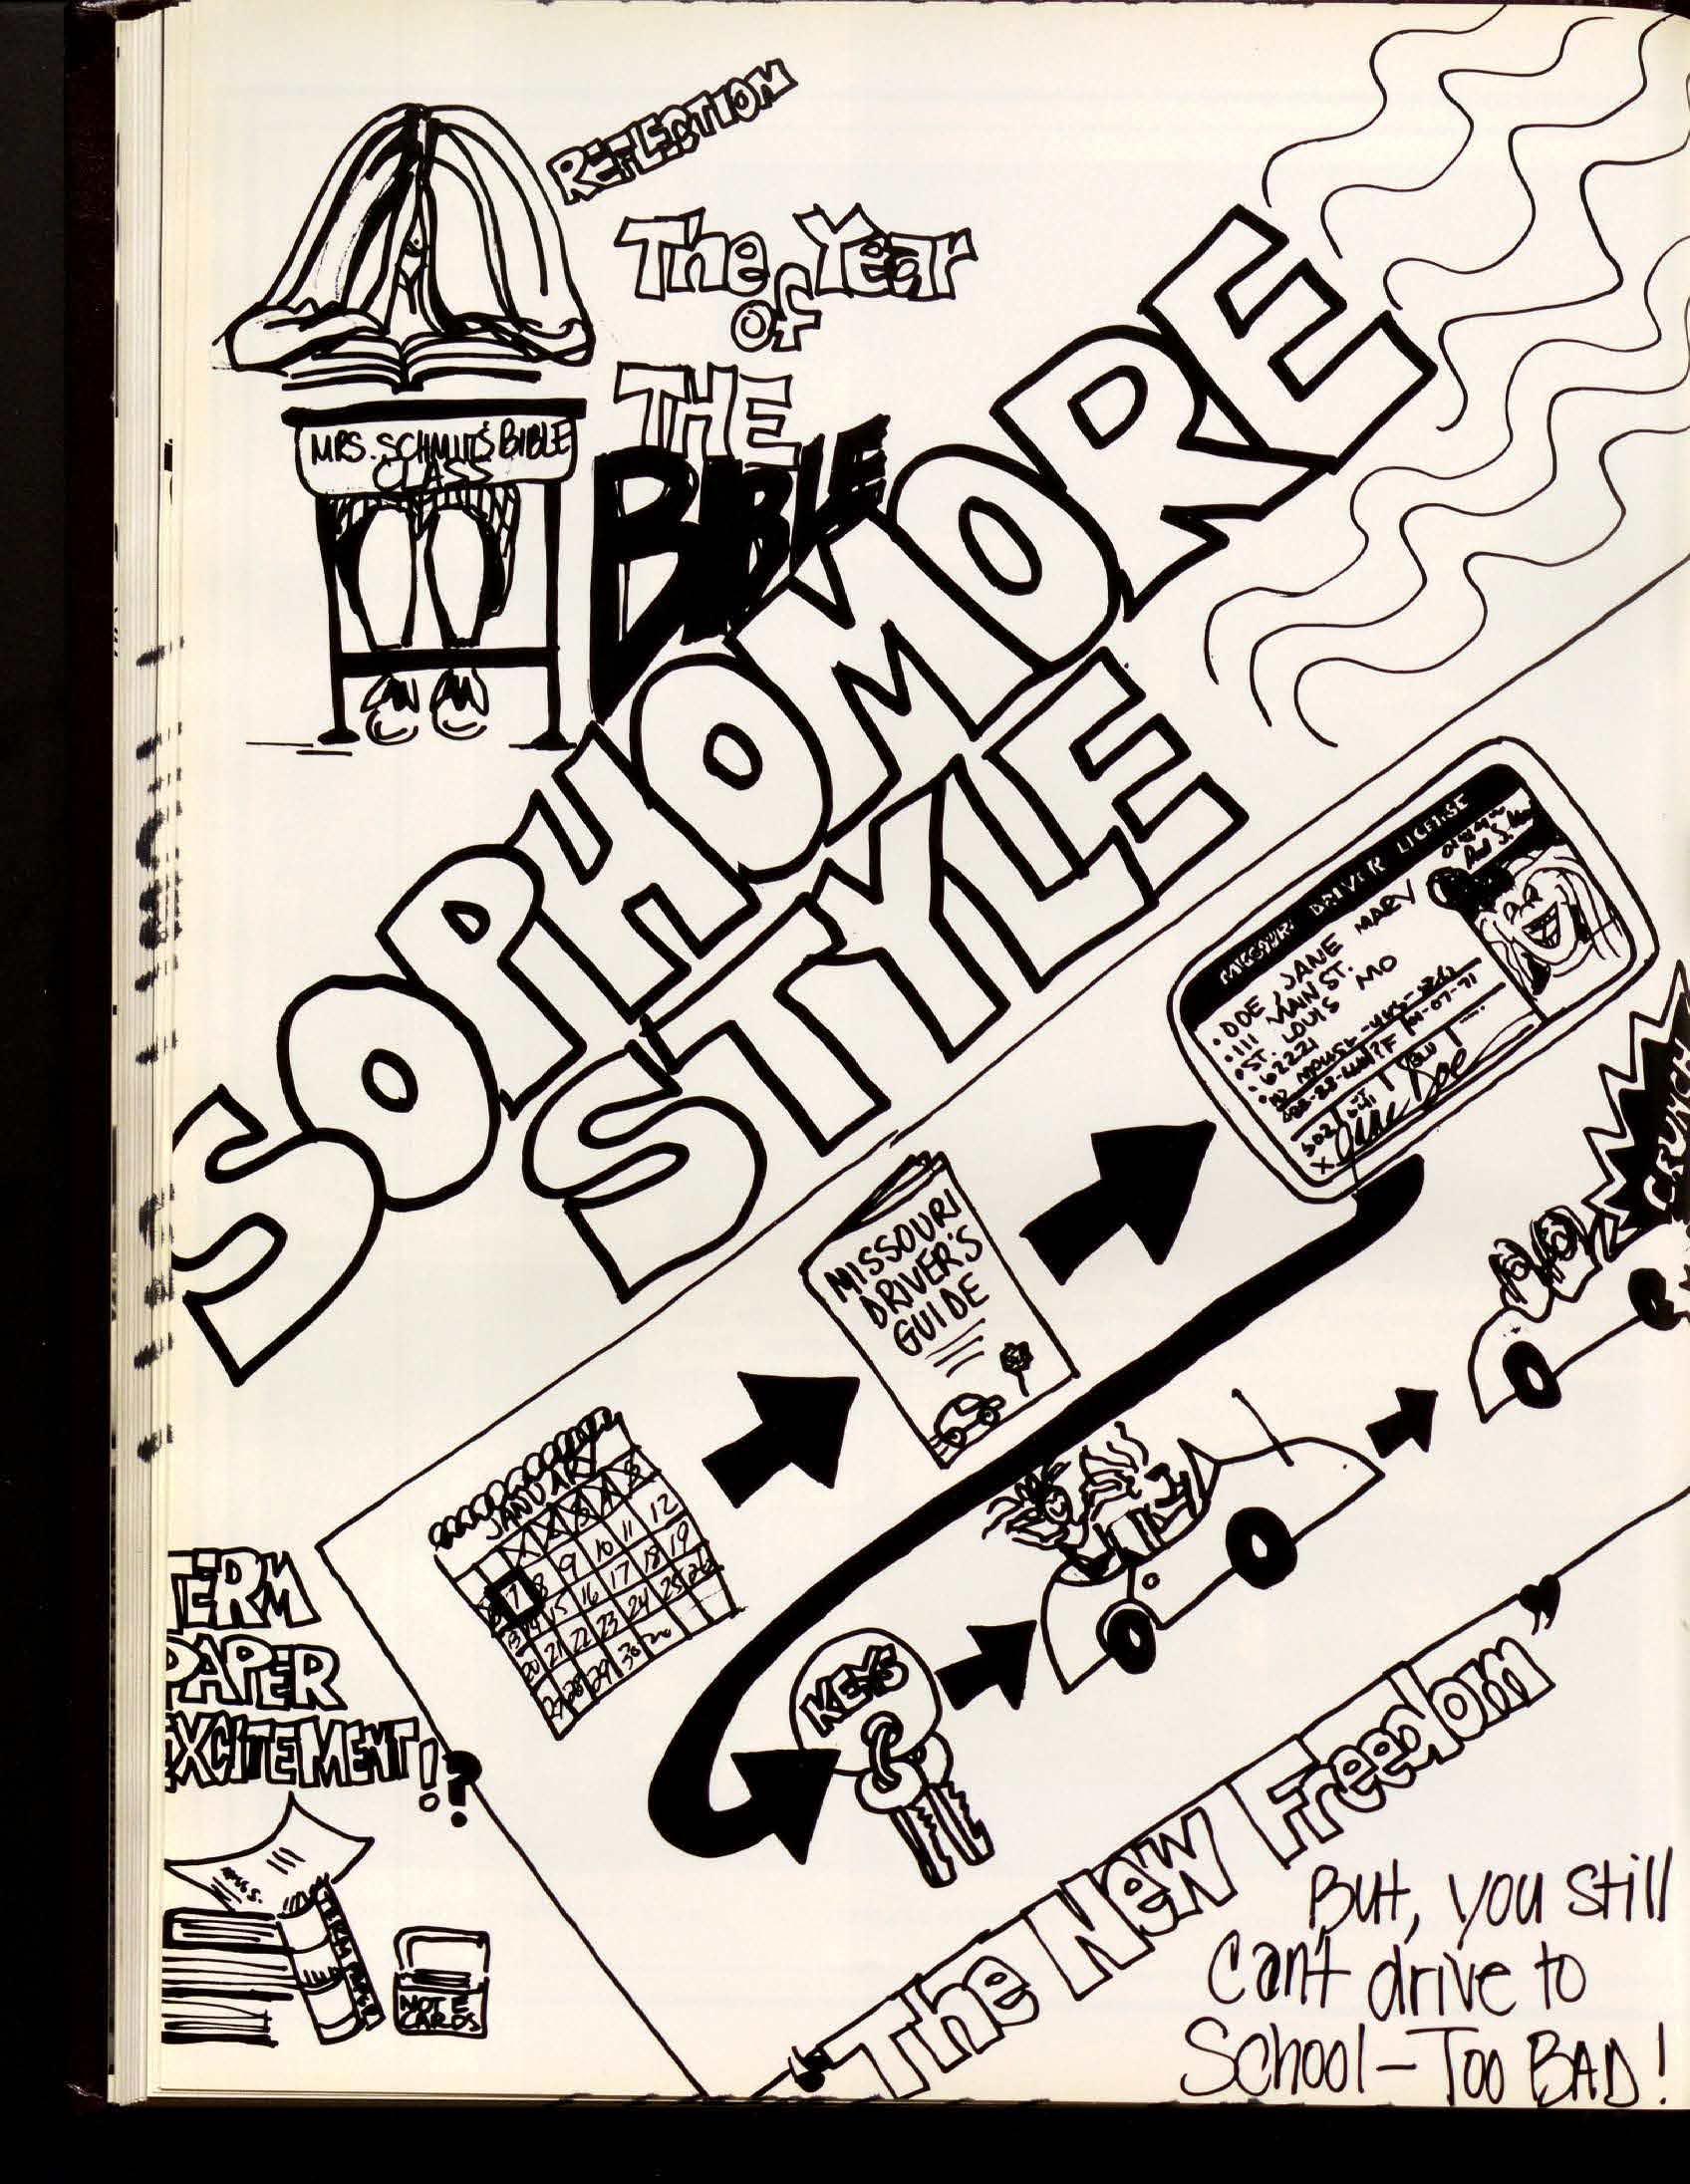 REFLECTION
The Year
of
THE
BIBLE
MRS. SCHMITT'S BIBLE
CLASS
SOPHOMORE
STYLE
MISSOURI DRIVER LICENSE
DOE, JANE MARY
111 MAIN ST.
ST. LOUIS MO
CRUNCH
MISSOURI
DRIVER'S
GUIDE
JANUARY
7 8 9 10 11 12
13 14 15 16 17 18 19
20 21 22 23 24 25 26
27 28 29 30
KEYS
TERM
PAPER
EXCITEMENT!?
NOTE
CARDS
"The New Freedom"
But, you still
Can't drive to
School - Too BAD!